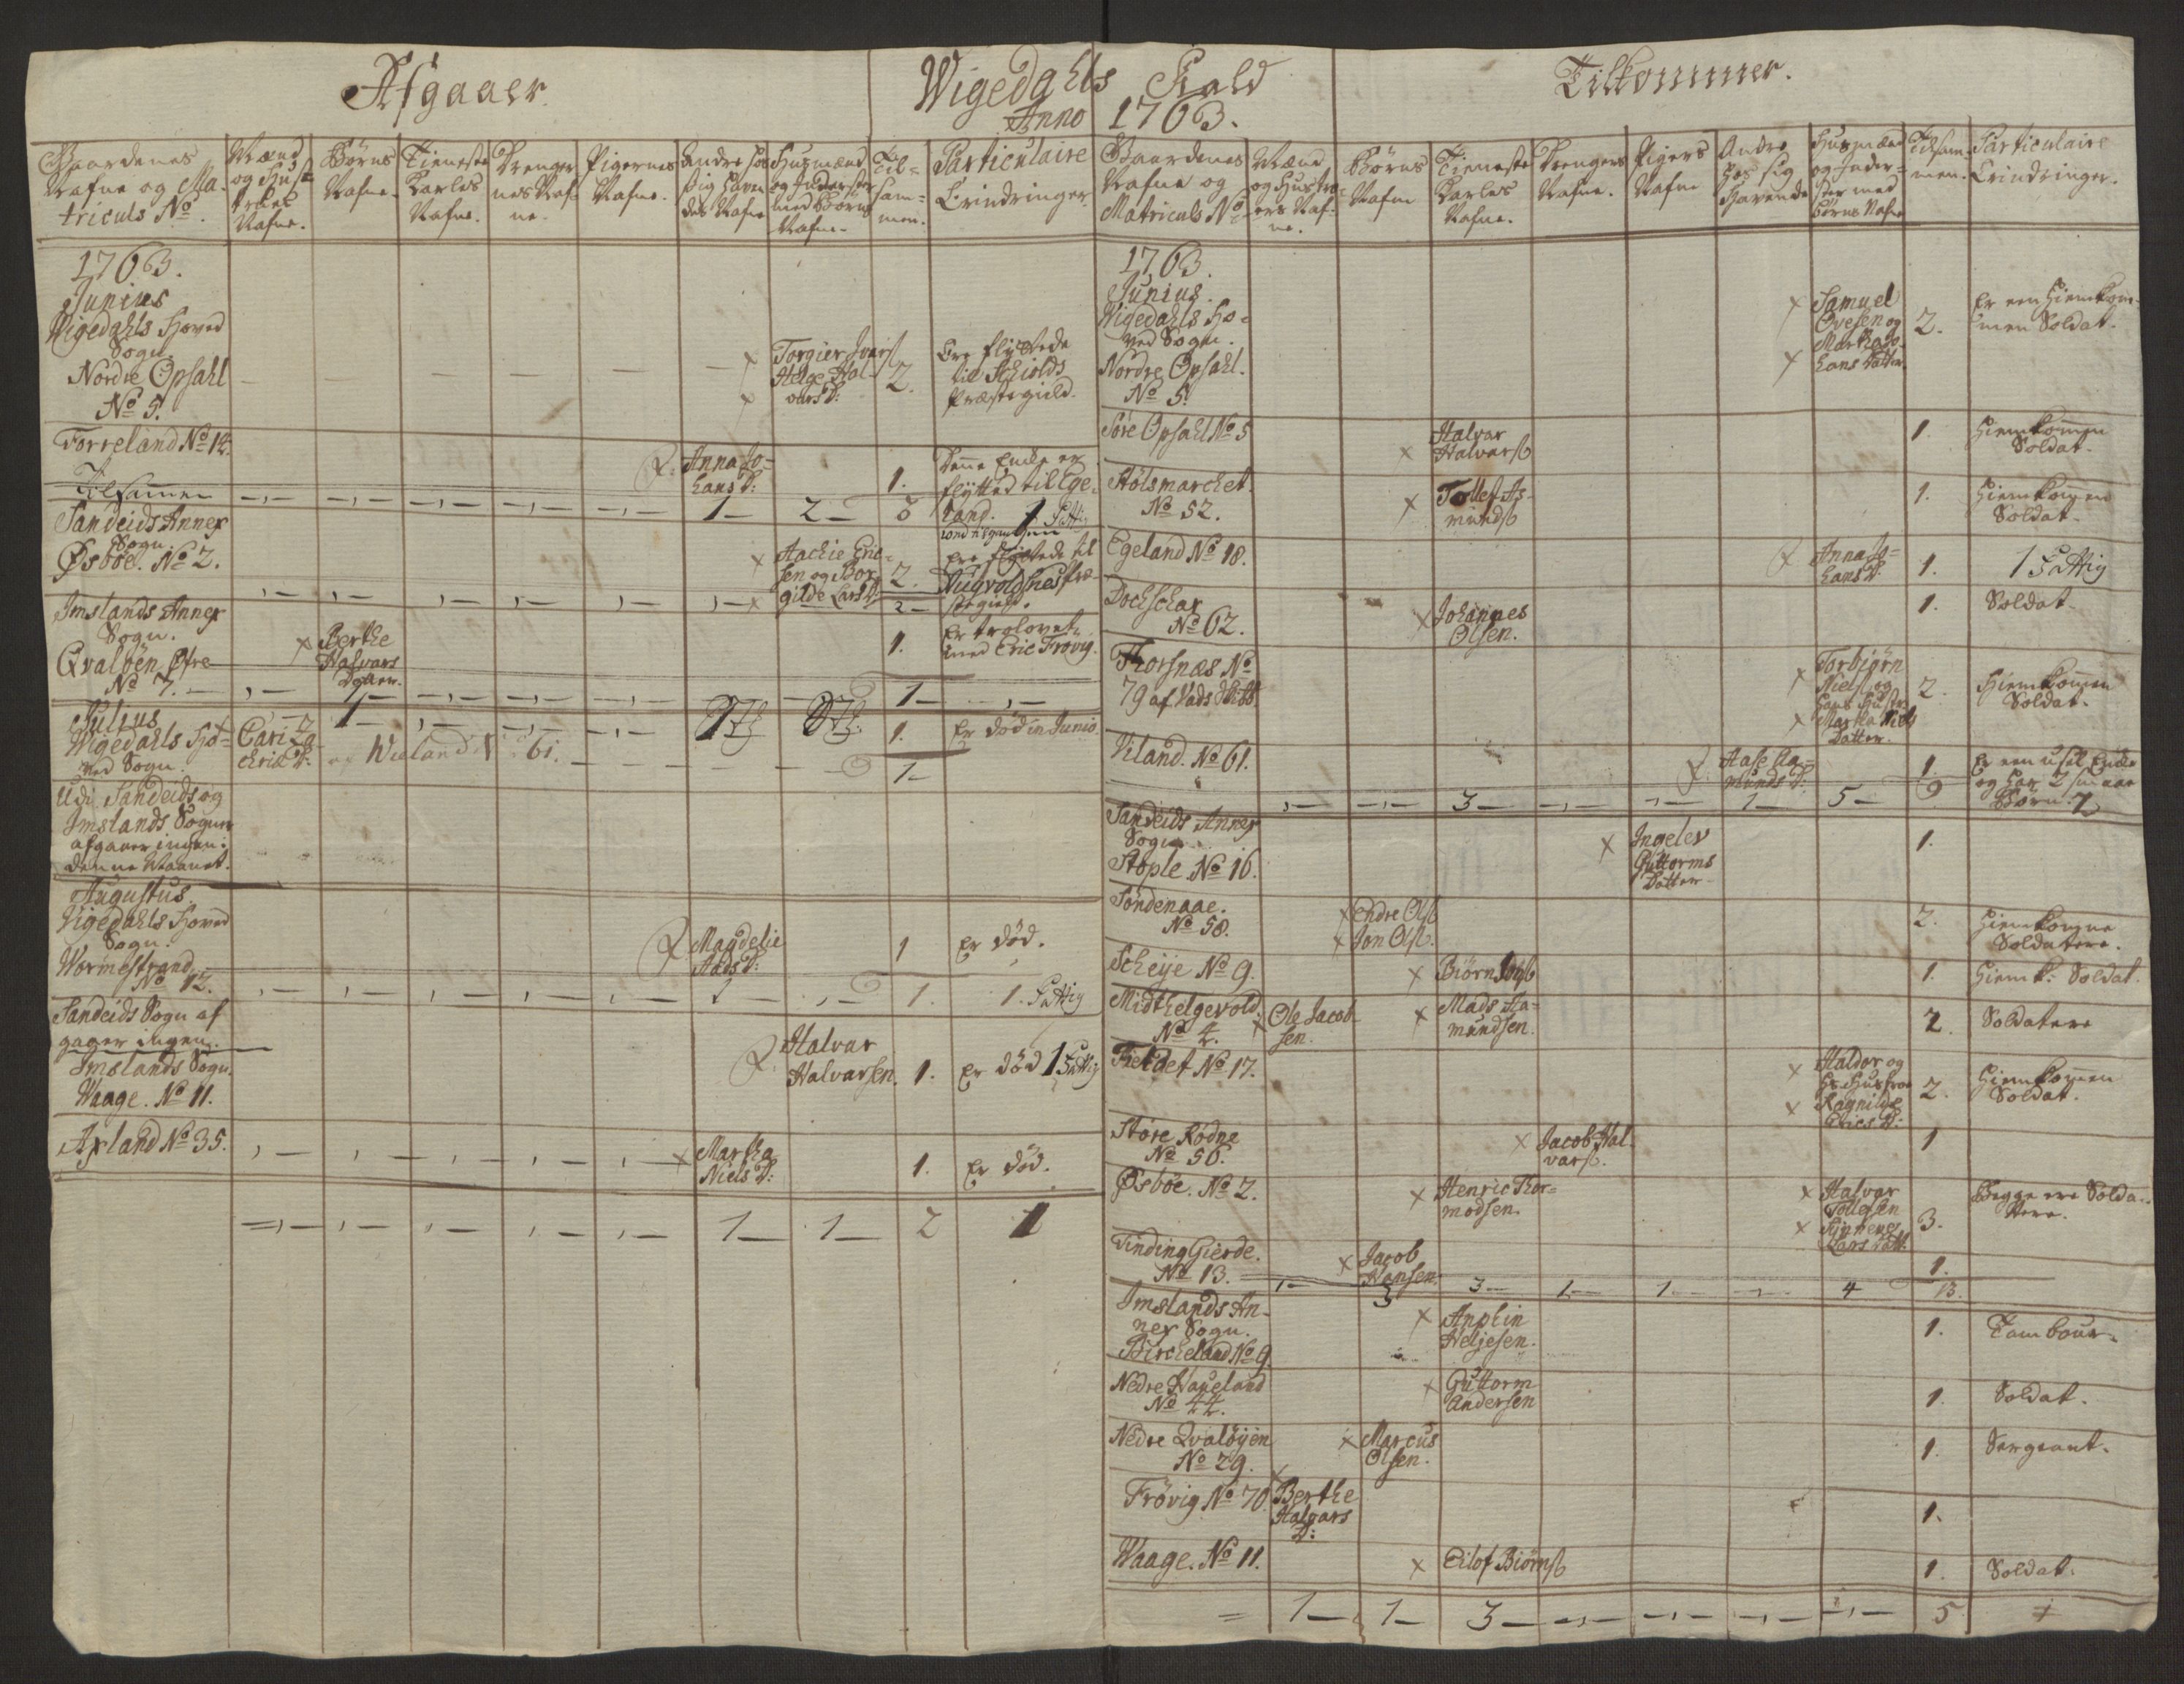 Afgaaer.
Wigedahls Kald
Anno 1763.
Tilkommer.
Gaardenes
Nafne og Ma-
triculs No.
Mænd
og Hus-
truers
Nafne.
Børns
Nafne.
Tieneste
Karles
Nafne.
Drenge-
nes Naf-
ne.
Pigernes
Nafne.
Andre hos
sig haven-
des Nafne
Husmænd
og Inderster
med Børns
Nafne.
Til-
sam-
men.
Particulaire
Erindringer.
1763.
Junius
Wigedahls Hoved
Sogn.
Nordre Opsahl
No 5.
Torgier Ivers
Helge Hal-
vars D:
2.
Ere flyttede
til Schiolds
Præstegield.
Torreland No 14.
Anna Jo-
hans D:
1.
Denne Encke er
flytted til Ege-
land. 1 Fattig
Tilsammen
1 — 2 — 3
Sandeids Annex
Sogn.
Øsbøe. No 2.
Aachie Eric-
sen og Bor-
gilde Lars D:
2.
Ere flyttede til
Augvoldsnes Præ-
stegield.
2 —
Imslands Annex
Sogn.
Qvaløen Øfre
No 7.
Berthe
Halvars
Datter.
1.
Er trolovet
med Eric Frøvig.
1 —
1 —
Julius
Wigedahls Ho-
ved Sogn.
Cari La-
Erics D:
af Wieland No 61.
1.
Er død in Junio.
1 —
Udi Sandeids og
Imslands Sogner
afgaaer ingen i
denne Maanet.
Augustus.
Vigedahls Hoved
Sogn.
Wormestrand
No 12.
Magdelie
Aads D:
1
Er død.
1 — 1. 1. Fattig
Sandeids Sogn af
gaaer ingen.
Imslands Sogn.
Waage. No 11.
Halvar
Halvarsen.
1.
Er død 1 Fattig
Axland No 35.
Martha
Niels D:
1.
Er død.
1 — 1 — 2 1
Gaardenes
Nafne og
Matriculs No
Mænd
og Hustru-
ers Naf-
ne.
Børns
Nafne
Tieneste
Karles
Nafne.
Drenges
Nafne.
Pigers
Nafne
Andre
hos sig
Havende
Husmænd
og Inder-
ster med
Børns Nafne
Tilsam-
men.
Particulaire
Erindringer.
1763.
Junius.
Wigedahls Ho-
ved Sogn.
Nordre Opsahl.
No 5.
Samuel
Ovesen og
Martha Jo-
hans Datter.
2.
Er een hiemkom-
men Soldat.
Søre Opsahl No 5
Halvar
Halvars
1.
Hiemkommen
Soldat.
Stølsmarchet.
No 52.
Tollef As-
munds
1.
Hiemkommen
Soldat.
Egeland No 18.
Anna Jo-
hans D:
1.
1 Fattig
Dochschar
No 62.
Johannes
Olsen.
1.
Soldat.
Thorsnæs No
79 af Vads
Torbiørn
Niels og
hans Hustru
Martha Niels
Datter.
2.
Hiemkommen
Soldat.
Viland. No 61.
Aase Aa-
munds D:
1.
Er een usel Encke
og har 2 smaae
Børn.
3 — 1 — 5 — 9
Sandeids Annex
Sogn.
Stople No 16.
Ingelev
Guttorms
Datter
1.
Søndenaae.
No 58.
Endre Ols
Jon Ols
2.
Hiemkomne
Soldatere.
Scheije No 9.
Biørn
1.
Hiemk: Soldat.
Midthelgevold.
No 4.
Ole Jacob-
sen.
Mads Aa-
mundsen.
2.
Soldatere
Fieldet No 17.
Haldor og
hs Hustroe
Ragnilde
Erics D:
2.
Hiemkommen
Soldat.
Støre Rødne
No 56.
Jacob Hal-
vars.
1
Øsbøe. No 2.
Henric Thor-
modsen.
Halvar
Tollefsen
Synneve
Lars Datt:
3.
Begge ere Solda-
tere.
Tinding Gierde.
No 13.
Jacob
Hansen.
1.
1 — 3 3 — 1 — 1 — 4 13.
Imslands An-
nex Sogn.
Bircheland No 9
Anphin
Heljesen.
1.
Tambour.
Nedre Haueland
No 44.
Guttorm
Andersen
1.
Soldat.
Nedre Qvaløyen
No 29.
Marcus
Olsen.
1.
Sergeant.
Frøvig No 70.
Berthe
Halvars
D:
1.
Waage. No 11.
Eilof Biørns
1.
Soldat.
= 1 — 1 — 3 — 5